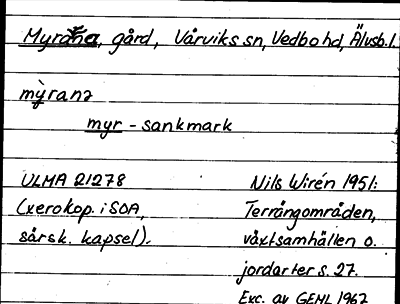 Myrarna, gård, Vårviks sn, Vedbo hd, Älvsb. l.
my̆rana
myr - sankmark
ULMA 21278
(xerokop. i SOA,
särsk. kapsel).
Nils Wirén 1951:
Terrängområden,
växtsamhällen o.
jordarter s. 27.
Exc. av GEHL 1967